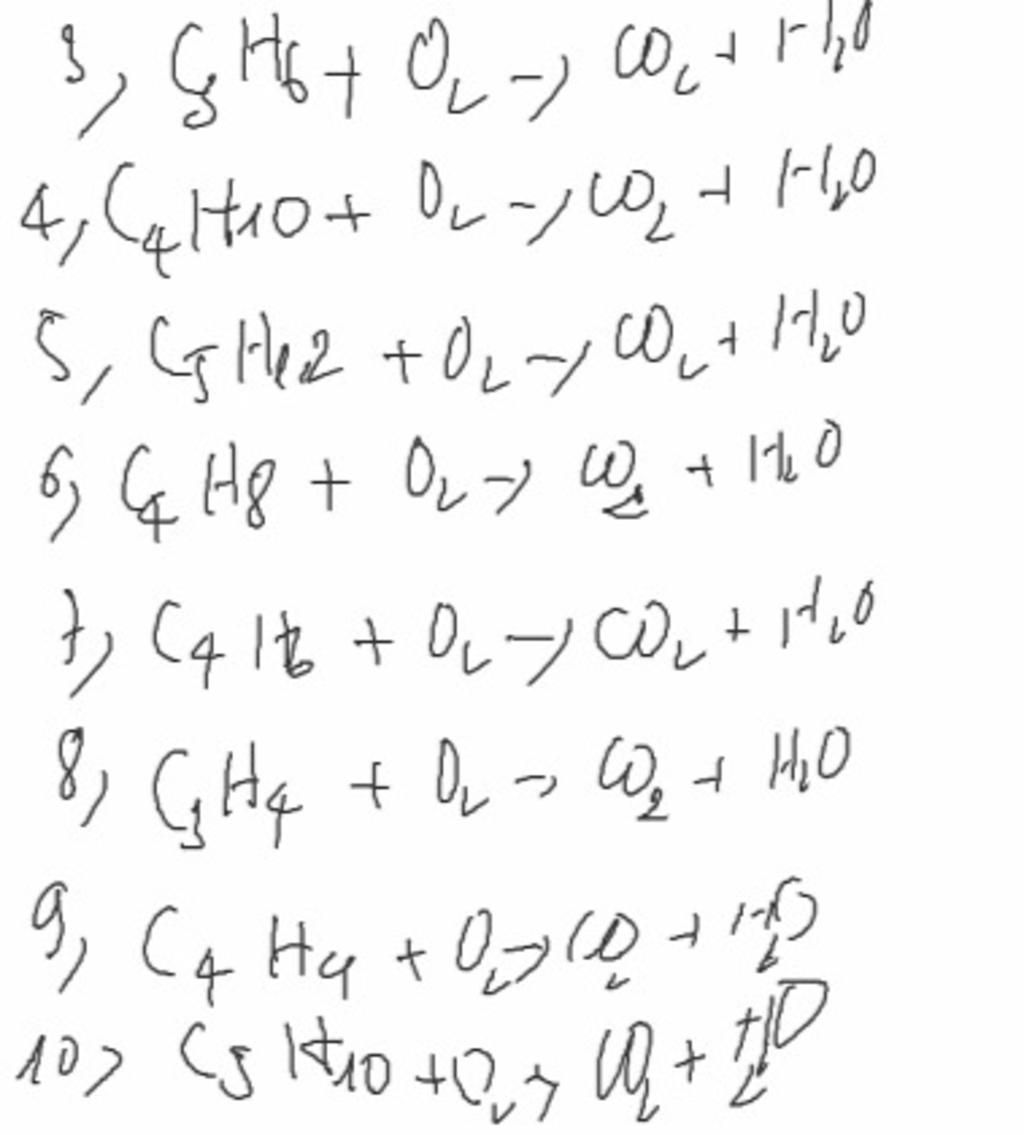 3, C3H6 + O2 -> CO2 + H2O
4, C4H10 + O2 -> CO2 + H2O
5, C5H12 + O2 -> CO2 + H2O
6, C4H8 + O2 -> CO2 + H2O
7, C4H6 + O2 -> CO2 + H2O
8, C3H4 + O2 -> CO2 + H2O
9, C4H4 + O2 -> CO2 + H2O
10, C5H10 + O2 -> CO2 + H2O